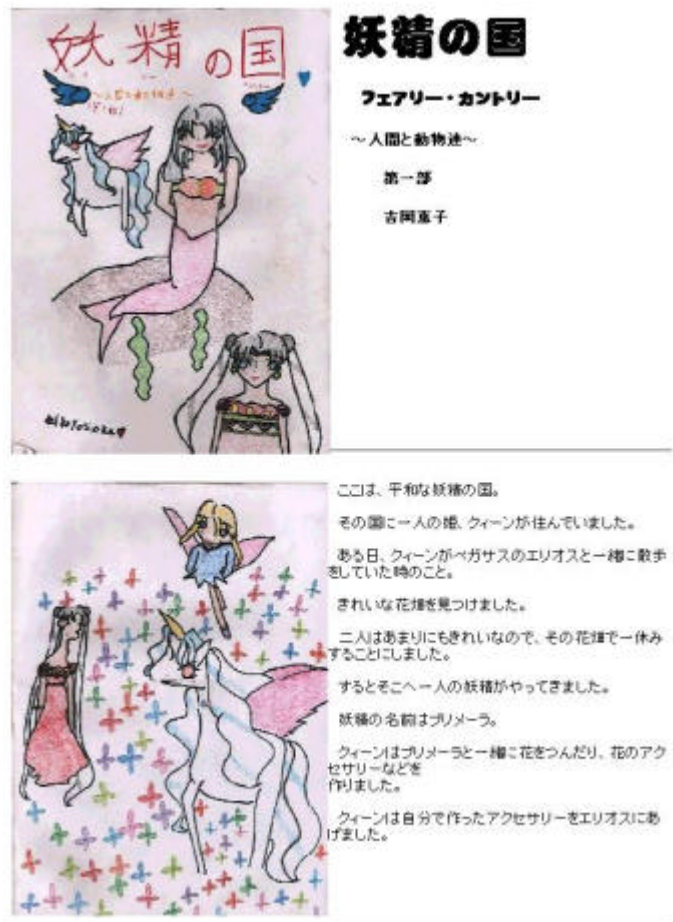 妖精の国
妖精の国
フェアリー・カントリー
～人間と動物達～
第一部
吉岡重子
ここは、平和な妖精の国。
その国に一人の姫、クィーンが住んでいました。
ある日、クィーンがペガサスのエリオスと一緒に散歩
をしていた時のこと。
きれいな花畑を見つけました。
二人はあまりにもきれいなので、その花畑で一休み
することにしました。
するとそこへ一人の妖精がやってきました。
妖精の名前はプリメーラ。
クィーンはプリメーラと一緒に花をつんだり、花のアク
セサリーなどを
作りました。
クィーンは自分で作ったアクセサリーをエリオスにあ
げました。